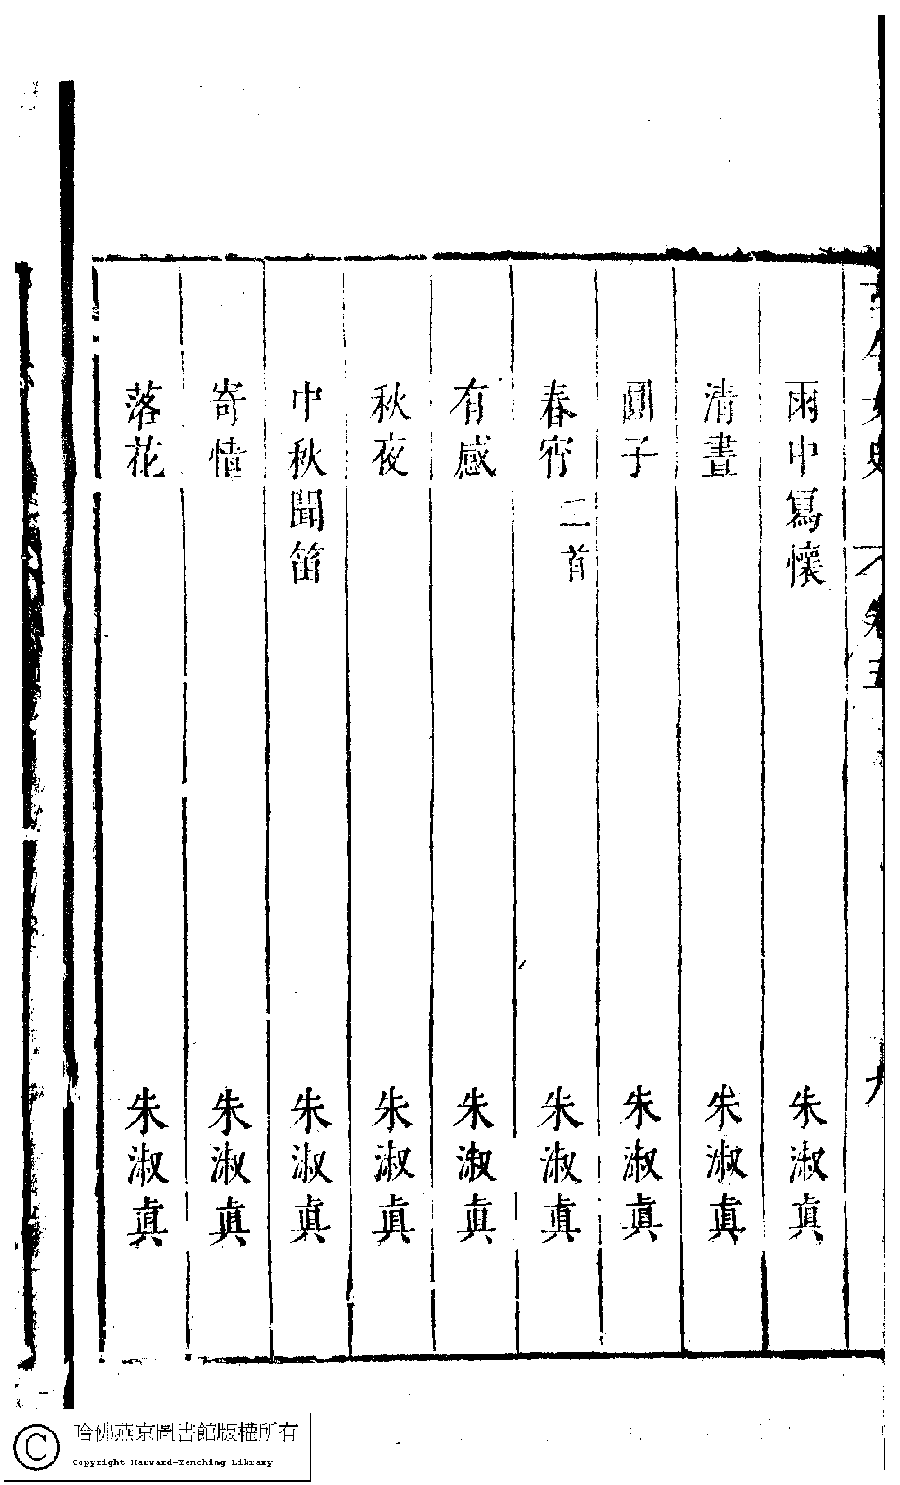 雨中寫懷 朱淑真
清晝 朱淑真
圓子 朱淑真
春宵二首 朱淑真
有感 朱淑真
秋夜 朱淑真
中秋聞笛 朱淑真
寄情 朱淑真
落花 朱淑真
哈佛燕京圖書館版權所有
Copyright Harvard-Yenching Library